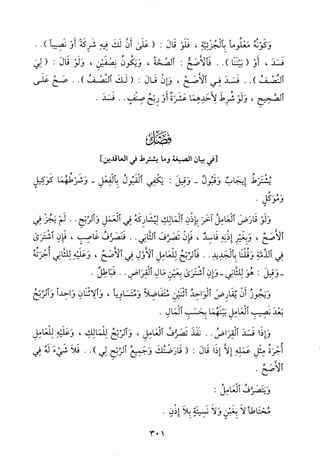 وَكَوْنُهُ مَعْلُوماً بِالْجُزْئِيَّةِ ، فَلَوْ قَالَ : ( عَلَىٰ أَنَّ لَكَ فِيهِ شَرِكَةً أَوْ نَصِيباً ) . .
فَسَدَ ، أَوْ ( بَيْنَنَا ) . . فَٱلأَصَحُّ : ٱلصِّحَّةُ ، وَيَكُونُ نِصْفَيْنِ ، وَلَوْ قَالَ : ( لِي
ٱلنِّصْفُ ) . . فَسَدَ فِي ٱلأَصَحِّ ، وَإِنْ قَالَ : ( لَكَ ٱلنِّصْفُ ) . . صَحَّ عَلَى
ٱلصَّحِيحِ ، وَلَوْ شُرِطَ لِأَحَدِهِمَا عَشَرَةٌ أَوْ رِبْحُ صِنْفٍ . . فَسَدَ .
فَصْلٌ
[في بيان الصيغة وما يشترط في العاقدين]
يُشْتَرَطُ إِيجَابٌ وَقَبُولٌ - وَقِيلَ : يَكْفِي ٱلْقَبُولُ بِٱلْفِعْلِ - وَشَرْطُهُمَا كَوَكِيلٍ
وَمُوَكِّلٍ .
وَلَوْ قَارَضَ ٱلْعَامِلُ آخَرَ بِإِذْنِ ٱلْمَالِكِ لِيُشَارِكَهُ فِي ٱلْعَمَلِ وَٱلرِّبْحِ . . لَمْ يَجُزْ فِي
ٱلأَصَحِّ ، وَبِغَيْرِ إِذْنِهِ فَاسِدٌ ، فَإِنْ تَصَرَّفَ ٱلثَّانِي . . فَتَصَرُّفُ غَاصِبٍ ، فَإِنِ ٱشْتَرَىٰ
فِي ٱلذِّمَّةِ وَقُلْنَا بِٱلْجَدِيدِ . . فَٱلرِّبْحُ لِلْعَامِلِ ٱلأَوَّلِ فِي ٱلأَصَحِّ ، وَعَلَيْهِ لِلثَّانِي أُجْرَتُهُ
- وَقِيلَ : هُوَ لِلثَّانِي - وَإِنِ ٱشْتَرَىٰ بِعَيْنِ مَالِ ٱلْقِرَاضِ . . فَبَاطِلٌ .
وَيَجُوزُ أَنْ يُقَارِضَ ٱلْوَاحِدُ ٱثْنَيْنِ مُتَفَاضِلاً وَمُتَسَاوِياً ، وَٱلِاثْنَانِ وَاحِداً وَٱلرِّبْحُ
بَعْدَ نَصِيبِ ٱلْعَامِلِ بَيْنَهُمَا بِحَسَبِ ٱلْمَالِ .
وَإِذَا فَسَدَ ٱلْقِرَاضُ . . نَفَذَ تَصَرُّفُ ٱلْعَامِلِ ، وَٱلرِّبْحُ لِلْمَالِكِ ، وَعَلَيْهِ لِلْعَامِلِ
أُجْرَةُ مِثْلِ عَمَلِهِ إِلاَّ إِذَا قَالَ : ( قَارَضْتُكَ وَجَمِيعُ ٱلرِّبْحِ لِي ) . . فَلاَ شَيْءَ لَهُ فِي
ٱلأَصَحِّ .
وَيَتَصَرَّفُ ٱلْعَامِلُ :
مُحْتَاطاً لاَ بِغَبْنٍ وَلاَ نَسِيئَةٍ بِلاَ إِذْنٍ .
٣٠١